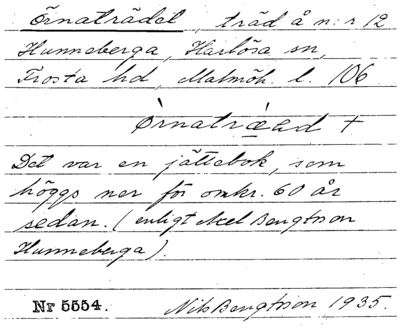 Örnaträdet, träd å n:r 12
Hunneberga, Harlösa sn,
Frosta hd, Malmöh. l. 106
Örnatræed +
Det var en jättebok, som
höggs ner för omkr. 60 år
sedan. (enligt Axel Bengtsson
Hunneberga).
Nr 5554. Nils Bengtsson 1935.